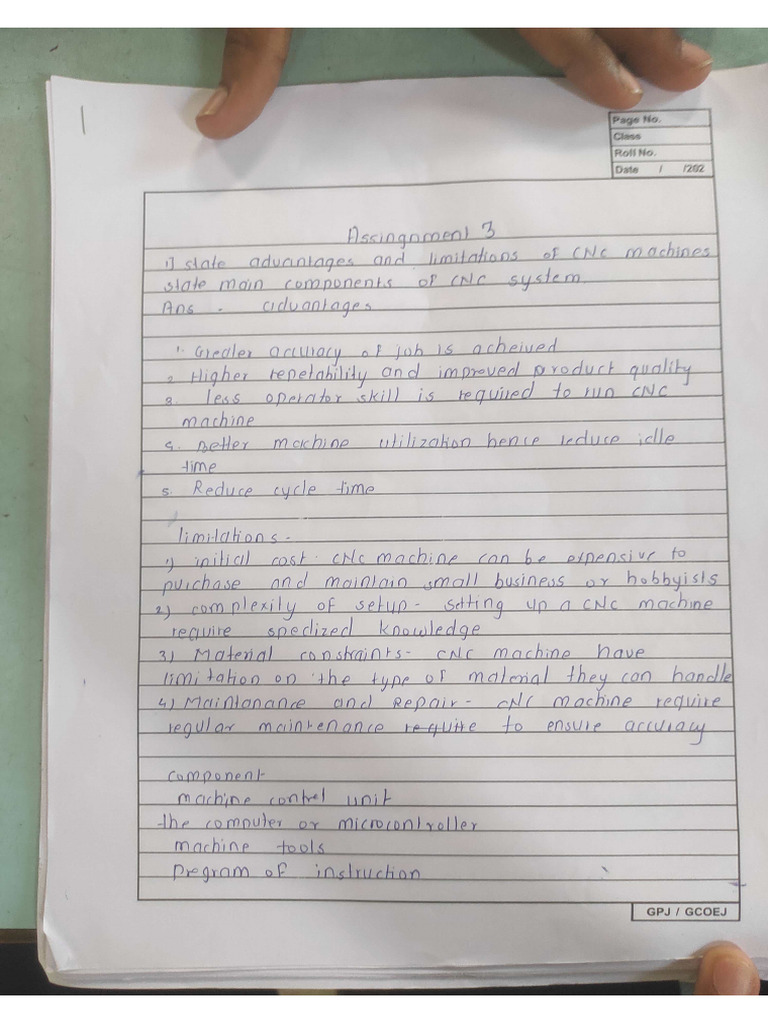 Page No.
Class
Roll No.
Date / /202
Assingnment 3
1) state advantages and limitations of CNC machines
state main components of CNC system.
Ans - advantages
1. Greater accuracy of job is acheived
2. Higher repetability and improved product quality
3. less operator skill is required to run CNC
machine
4. Better machine utilization hence reduce idle
time
5. Reduce cycle time
limitations -
1) initial cost - CNC machine can be expensive to
purchase and maintain small business or hobbyists
2) complexity of setup - setting up a CNC machine
require speclized knowledge
3) Material constraints - CNC machine have
limitation on the type of material they can handle
4) Maintanance and Repair - CNC machine require
regular maintenance require to ensure accuracy
component
machine control unit
the computer or microcontroller
machine tools
program of instruction
GPJ / GCOEJ